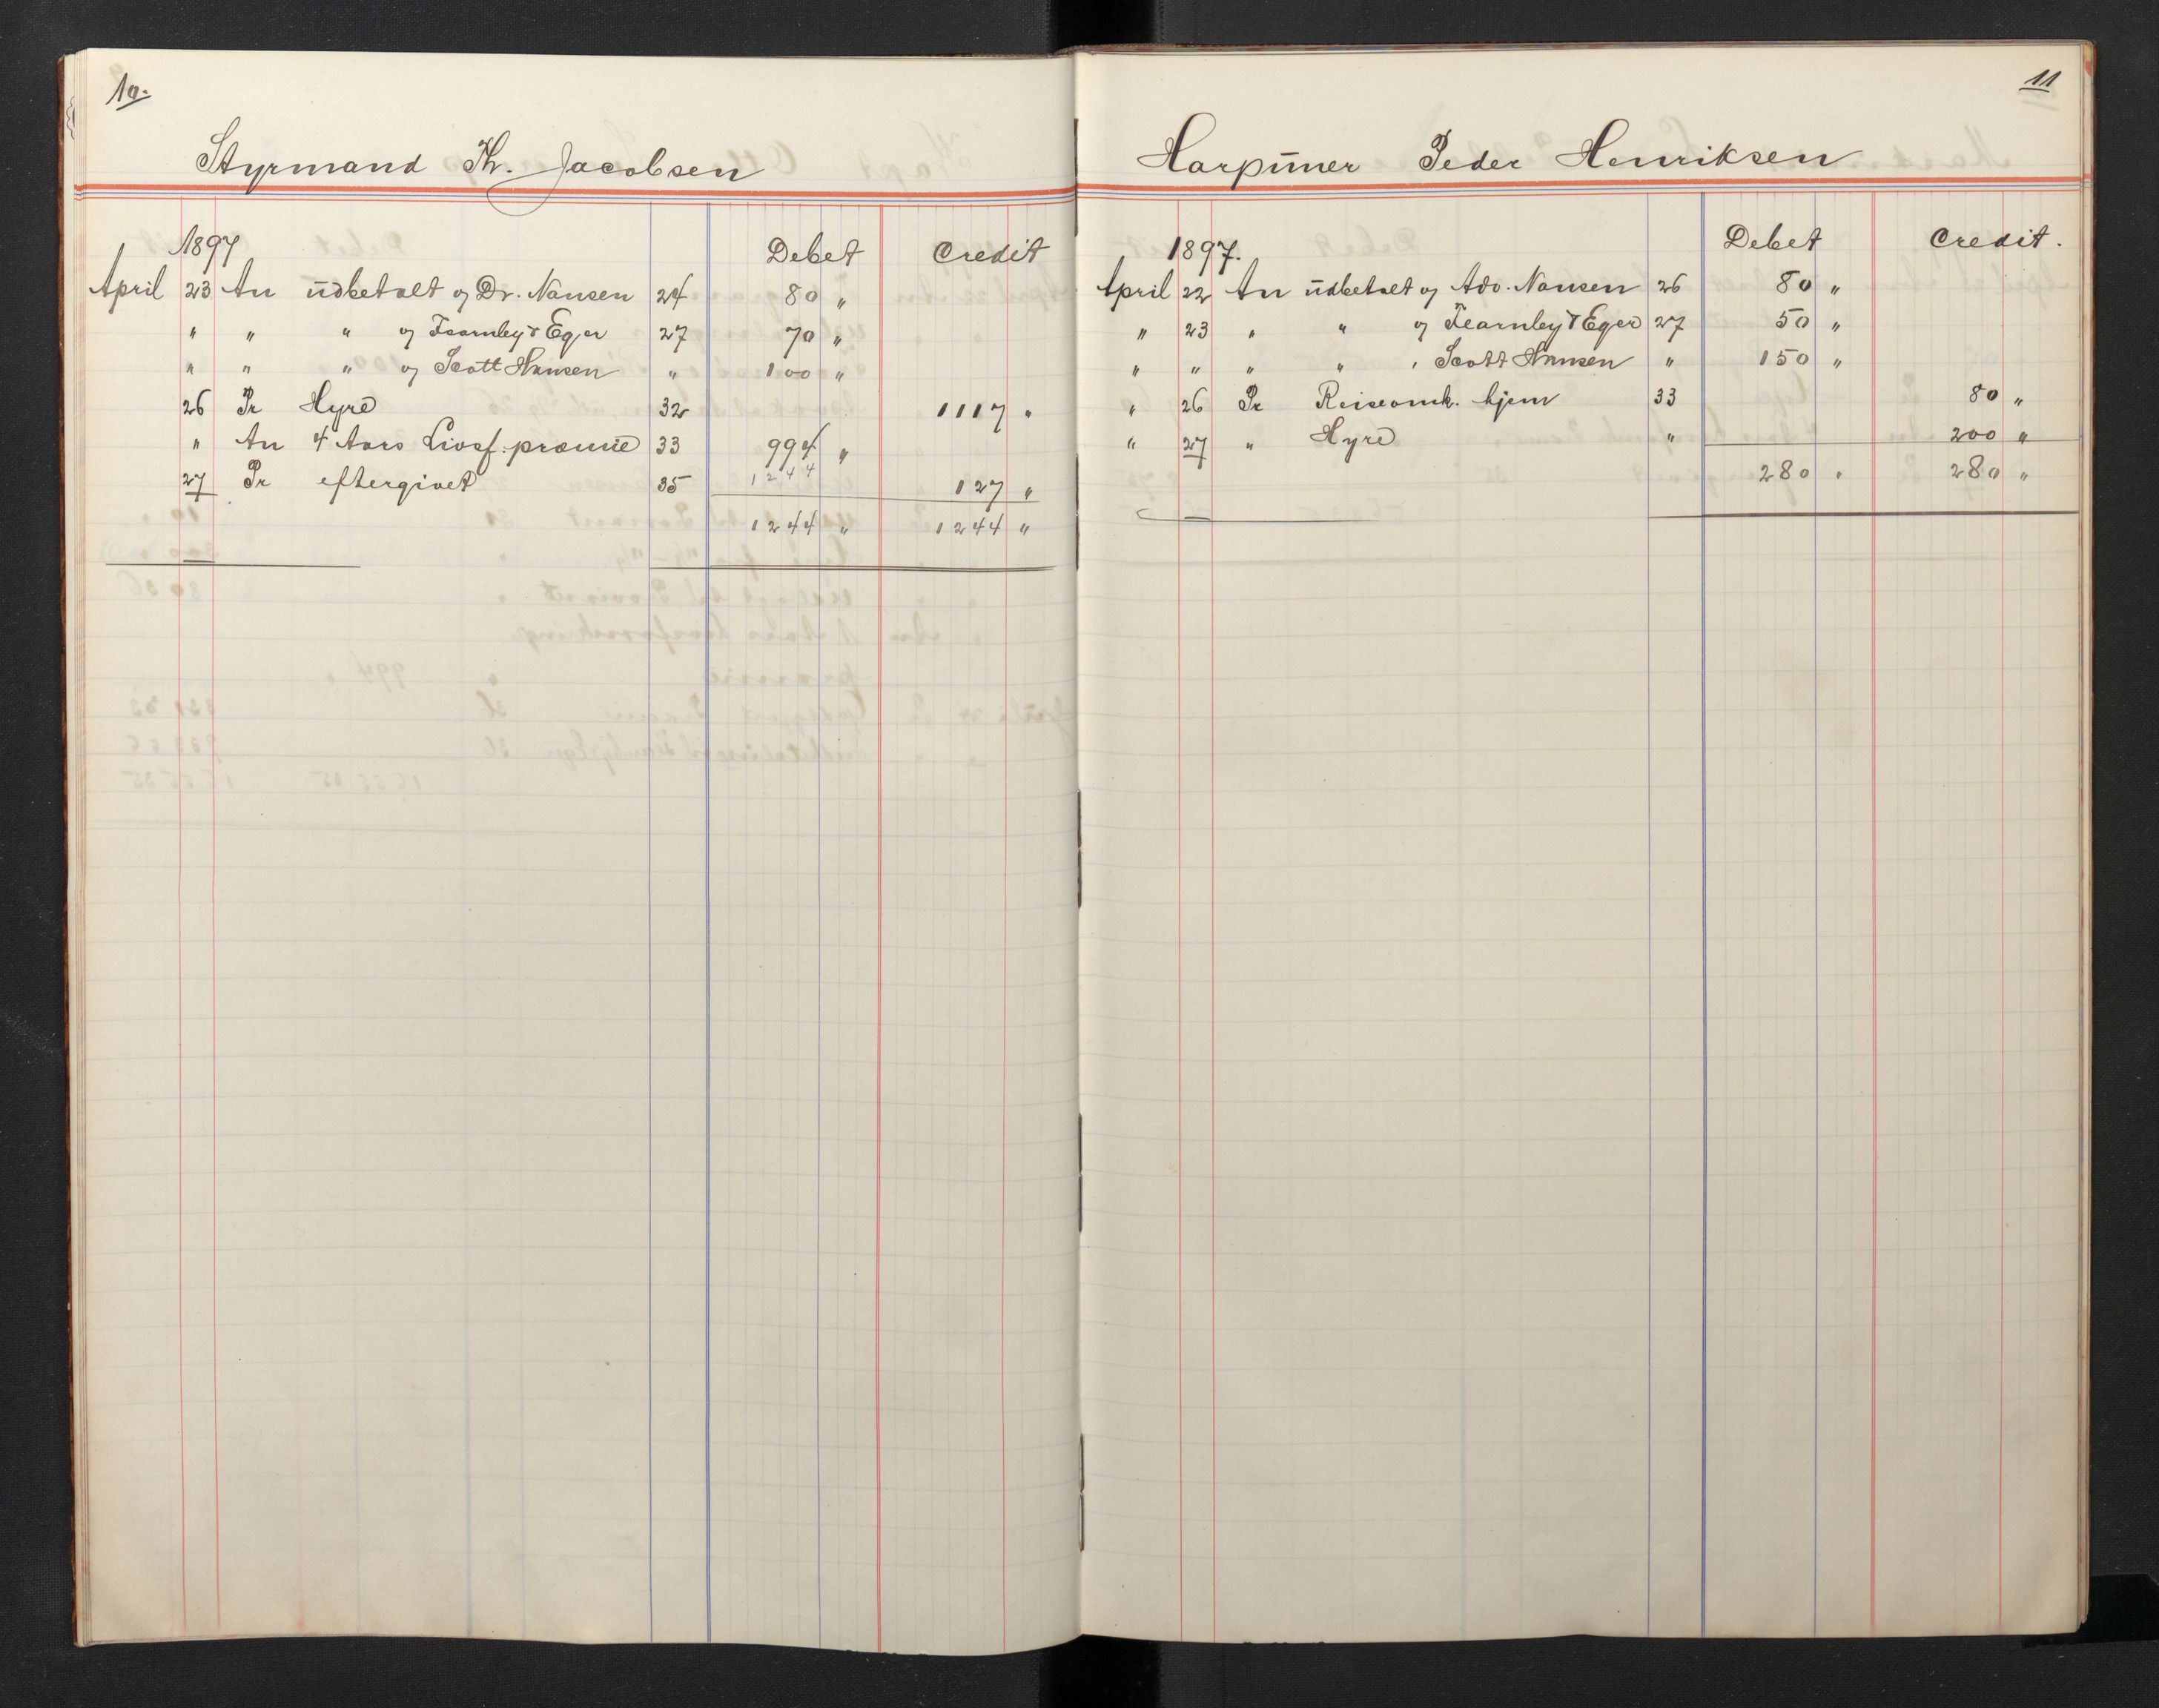 10.
Styrmand Th. Jacobsen
1897 Debet Credit
April 23 An udbetalt af Dr. Nansen 24 80 "
" " " af Fearnley & Eger 27 70 "
" " " af Scott Hansen " 100 "
26 Pr Hyre 32 1117 "
" An 4 Aars Livsf. præmie 33 994 "
1244
27 Pr eftergivet 35 127 "
1244 " 1244 "
11
Harpuner Peder Henriksen
1897. Debet Credit.
April 22 An udbetalt af Adv. Nansen 26 80 "
" 23 " " af Fearnley & Eger 27 50 "
" " " " " Scott Hansen " 150 "
" 26 Pr Reiseomk. hjem 33 80 "
" 27 " Hyre " 200 "
280 " 280 "